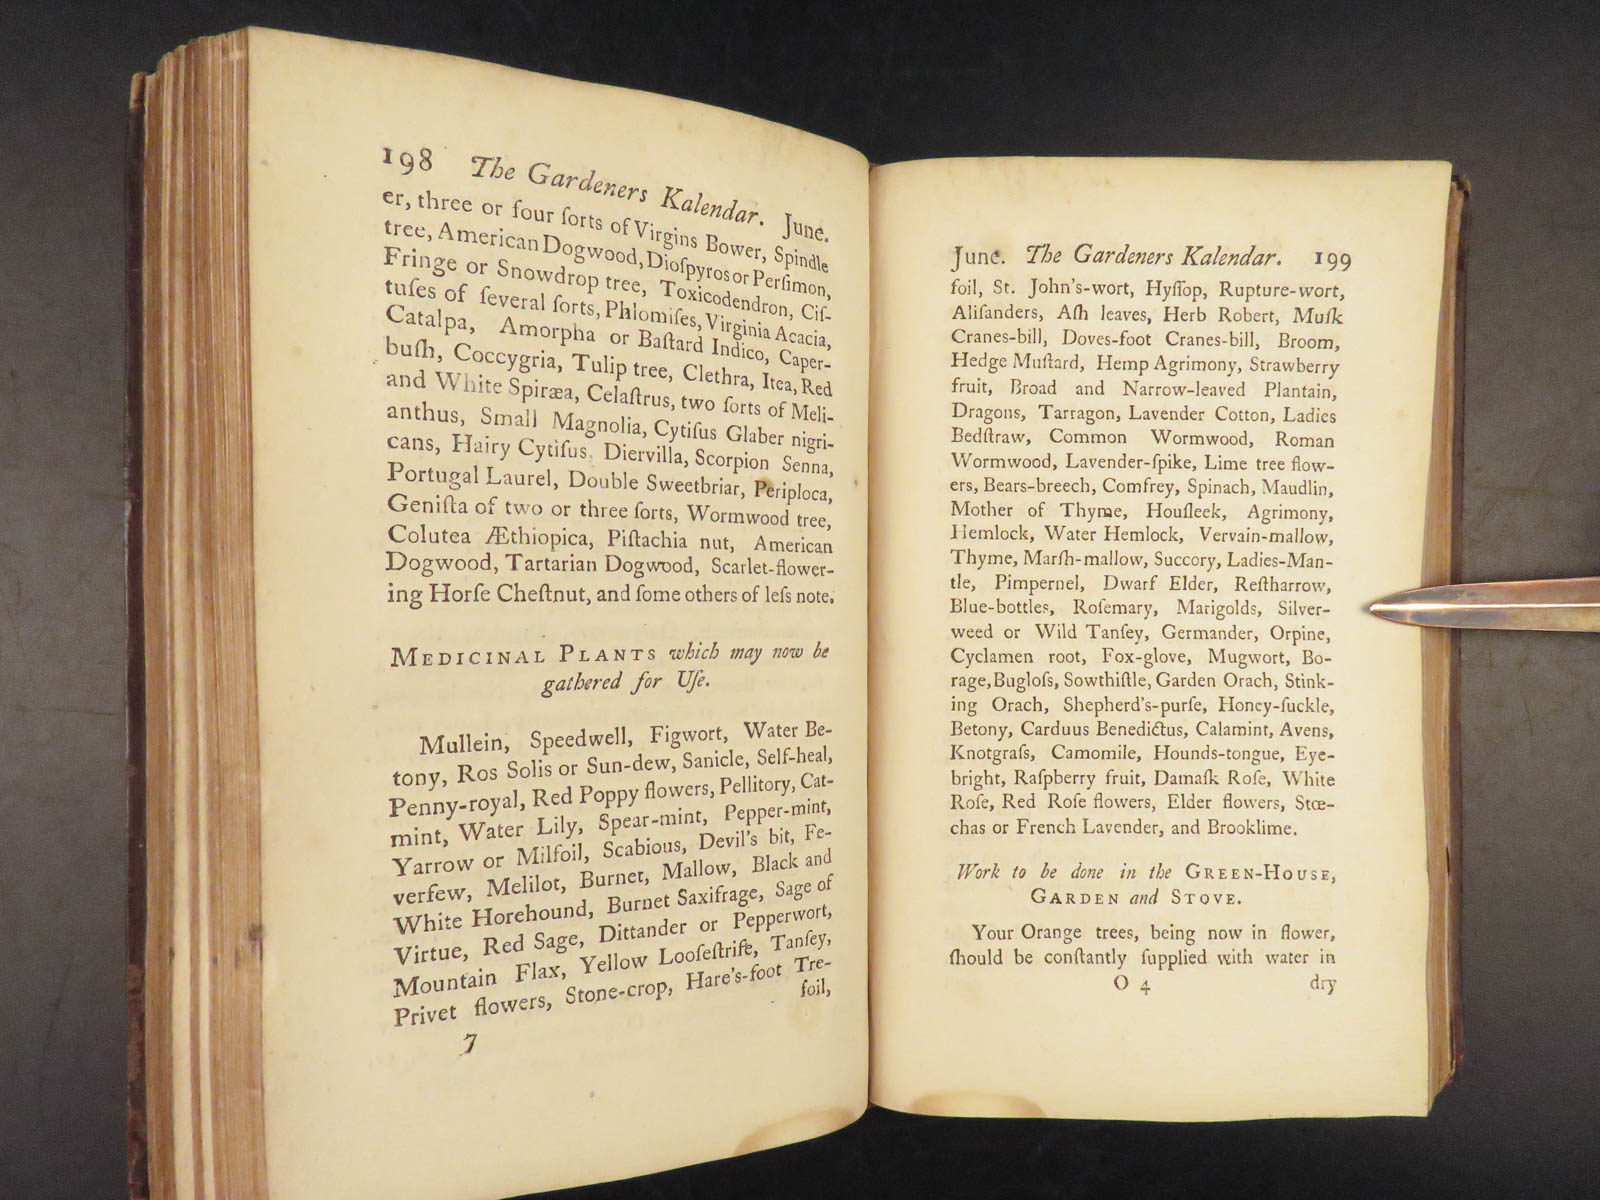 198 The Gardeners Kalendar. June.
er, three or four ſorts of Virgins Bower, Spindle
tree, American Dogwood, Dioſpyros or Perſimon,
Fringe or Snowdrop tree, Toxicodendron, Ciſ-
tuſes of ſeveral ſorts, Phlomiſes, Virginia Acacia,
Catalpa, Amorpha or Baſtard Indico, Caper-
buſh, Coccygria, Tulip tree, Clethra, Itea, Red
and White Spiræa, Celaſtrus, two ſorts of Meli-
anthus, Small Magnolia, Cytiſus Glaber nigri-
cans, Hairy Cytiſus, Diervilla, Scorpion Senna,
Portugal Laurel, Double Sweetbriar, Periploca,
Geniſta of two or three ſorts, Wormwood tree,
Colutea Æthiopica, Piſtachia nut, American
Dogwood, Tartarian Dogwood, Scarlet-flower-
ing Horſe Cheſtnut, and ſome others of leſs note.
MEDICINAL PLANTS which may now be
gathered for Uſe.
Mullein, Speedwell, Figwort, Water Be-
tony, Ros Solis or Sun-dew, Sanicle, Self-heal,
Penny-royal, Red Poppy flowers, Pellitory, Cat-
mint, Water Lily, Spear-mint, Pepper-mint,
Yarrow or Milfoil, Scabious, Devil's bit, Fe-
verfew, Melilot, Burnet, Mallow, Black and
White Horehound, Burnet Saxifrage, Sage of
Virtue, Red Sage, Dittander or Pepperwort,
Mountain Flax, Yellow Looſeſtrife, Tanſey,
Privet flowers, Stone-crop, Hare's-foot Tre-
foil,
7
June. The Gardeners Kalendar. 199
foil, St. John's-wort, Hyſſop, Rupture-wort,
Aliſanders, Aſh leaves, Herb Robert, Muſk
Cranes-bill, Doves-foot Cranes-bill, Broom,
Hedge Muſtard, Hemp Agrimony, Strawberry
fruit, Broad and Narrow-leaved Plantain,
Dragons, Tarragon, Lavender Cotton, Ladies
Bedſtraw, Common Wormwood, Roman
Wormwood, Lavender-ſpike, Lime tree flow-
ers, Bears-breech, Comfrey, Spinach, Maudlin,
Mother of Thyme, Houſleek, Agrimony,
Hemlock, Water Hemlock, Vervain-mallow,
Thyme, Marſh-mallow, Succory, Ladies-Man-
tle, Pimpernel, Dwarf Elder, Reſtharrow,
Blue-bottles, Roſemary, Marigolds, Silver-
weed or Wild Tanſey, Germander, Orpine,
Cyclamen root, Fox-glove, Mugwort, Bo-
rage, Bugloſs, Sowthiſtle, Garden Orach, Stink-
ing Orach, Shepherd's-purſe, Honey-ſuckle,
Betony, Carduus Benedictus, Calamint, Avens,
Knotgraſs, Camomile, Hounds-tongue, Eye-
bright, Raſpberry fruit, Damaſk Roſe, White
Roſe, Red Roſe flowers, Elder flowers, Stœ-
chas or French Lavender, and Brooklime.
Work to be done in the GREEN-HOUSE,
GARDEN and STOVE.
Your Orange trees, being now in flower,
ſhould be conſtantly ſupplied with water in
O 4 dry